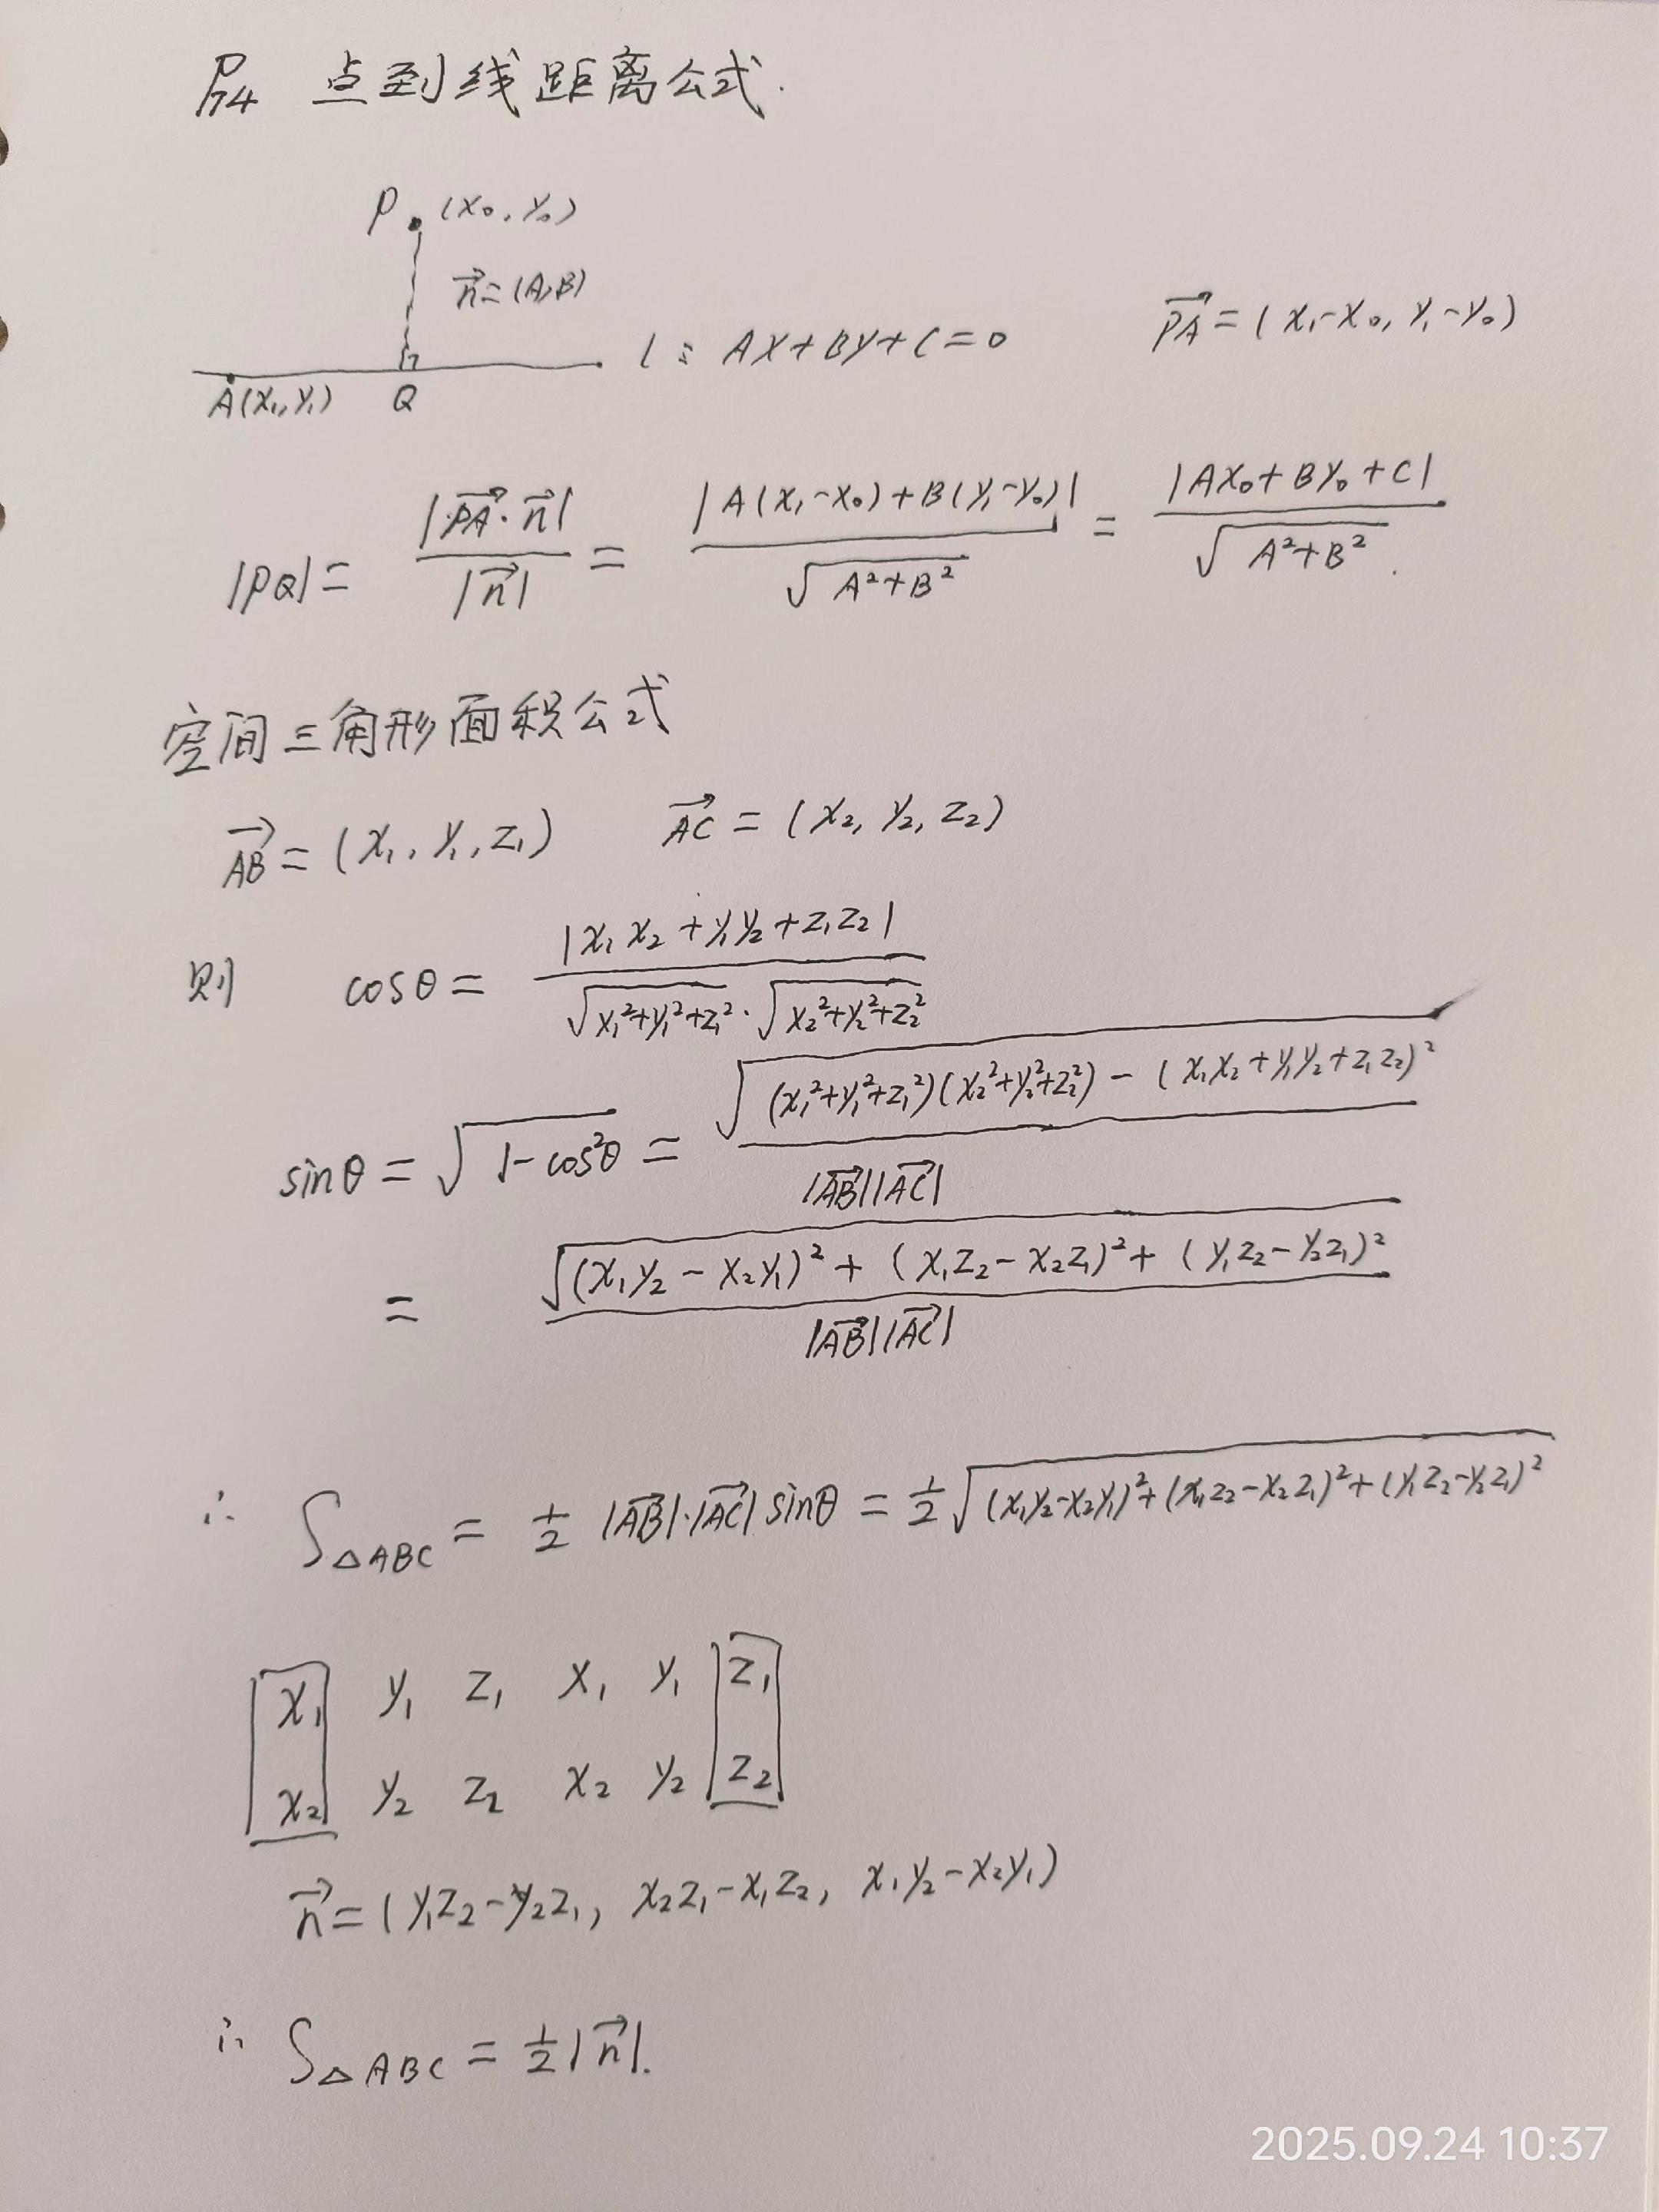 P74 点到线距离公式.
P (x₀, y₀)
n⃗=(A,B)
l: Ax+By+C=0
PA⃗=(x₁-x₀, y₁-y₀)
A(x₁, y₁) Q
|PQ|= |PA⃗·n⃗| / |n⃗| = |A(x₁-x₀)+B(y₁-y₀)| / √(A²+B²) = |Ax₀+By₀+C| / √(A²+B²).
空间三角形面积公式
AB⃗=(x₁, y₁, z₁) AC⃗=(x₂, y₂, z₂)
则 cosθ= |x₁x₂+y₁y₂+z₁z₂| / √(x₁²+y₁²+z₁²)·√(x₂²+y₂²+z₂²)
sinθ=√(1-cos²θ) = √((x₁²+y₁²+z₁²)(x₂²+y₂²+z₂²)-(x₁x₂+y₁y₂+z₁z₂)²) / |AB⃗||AC⃗|
= √((x₁y₂-x₂y₁)²+(x₁z₂-x₂z₁)²+(y₁z₂-y₂z₁)²) / |AB⃗||AC⃗|
∴ S△ABC = ½|AB⃗|·|AC⃗|sinθ = ½√((x₁y₂-x₂y₁)²+(x₁z₂-x₂z₁)²+(y₁z₂-y₂z₁)²)
x₁ y₁ z₁ x₁ y₁ z₁
x₂ y₂ z₂ x₂ y₂ z₂
n⃗=(y₁z₂-y₂z₁, x₂z₁-x₁z₂, x₁y₂-x₂y₁)
∴ S△ABC=½|n⃗|.
2025.09.24 10:37